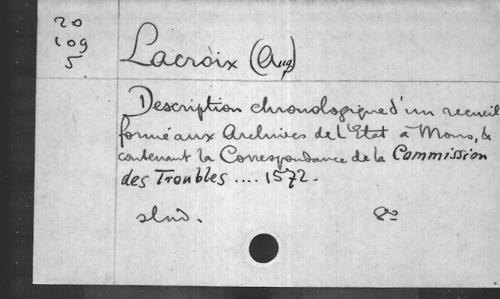 20
109
5.
Lacroix (Aug)
Description chronologique d'un recueil
formé aux Archives de l'Etat à Mons, &
contenant la Correspondance de la Commission
des Troubles .... 1572.
slnd. 8º